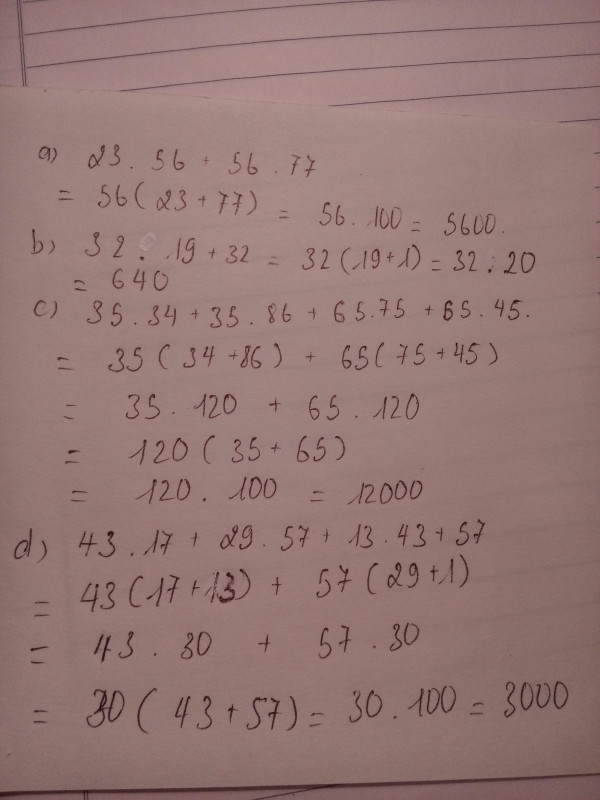 a) 23 . 56 + 56 . 77
= 56 ( 23 + 77 ) = 56 . 100 = 5600.
b) 32 . 19 + 32 = 32 ( 19 + 1 ) = 32 . 20
= 640
c) 35 . 34 + 35 . 86 + 65 . 75 + 65 . 45.
= 35 ( 34 + 86 ) + 65 ( 75 + 45 )
= 35 . 120 + 65 . 120
= 120 ( 35 + 65 )
= 120 . 100 = 12000
d) 43 . 17 + 29 . 57 + 13 . 43 + 57
= 43 ( 17 + 13 ) + 57 ( 29 + 1 )
= 43 . 30 + 57 . 30
= 30 ( 43 + 57 ) = 30 . 100 = 3000